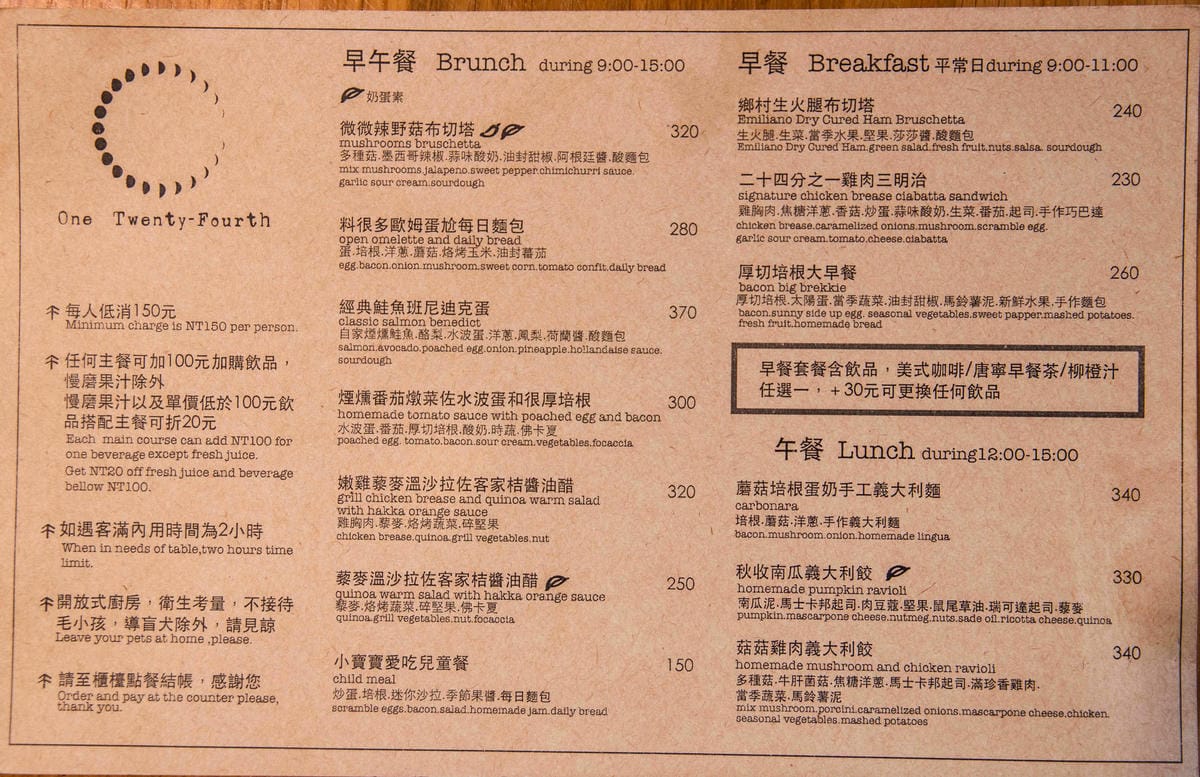 One Twenty-Fourth
每人低消150元
Minimum charge is NT150 per person.
任何主餐可加100元加購飲品，
慢磨果汁除外
慢磨果汁以及單價低於100元飲
品搭配主餐可折20元
Each main course can add NT100 for
one beverage except fresh juice.
Get NT20 off fresh juice and beverage
bellow NT100.
如遇客滿內用時間為2小時
When in needs of table,two hours time
limit.
開放式廚房，衛生考量，不接待
毛小孩，導盲犬除外，請見諒
Leave your pets at home ,please.
請至櫃檯點餐結帳，感謝您
Order and pay at the counter please,
thank you.
早午餐 Brunch during 9:00-15:00
奶蛋素
微微辣野菇布切塔 320
mushrooms bruschetta
多種菇.墨西哥辣椒.蒜味酸奶.油封甜椒.阿根廷醬.酸麵包
mix mushrooms.jalapeno.sweet pepper.chimichurri sauce.
garlic sour cream.sourdough
料很多歐姆蛋尬每日麵包 280
open omelette and daily bread
蛋.培根.洋蔥.蘑菇.烙烤玉米.油封蕃茄
egg.bacon.onion.mushroom.sweet corn.tomato confit.daily bread
經典鮭魚班尼迪克蛋 370
classic salmon benedict
自家煙燻鮭魚.酪梨.水波蛋.洋蔥.鳳梨.荷蘭醬.酸麵包
salmon.avocado.poached egg.onion.pineapple.hollandaise sauce.
sourdough
煙燻番茄燉菜佐水波蛋和很厚培根 300
homemade tomato sauce with poached egg and bacon
水波蛋.番茄.厚切培根.酸奶.時蔬.佛卡夏
poached egg. tomato.bacon.sour cream.vegetables.focaccia
嫩雞藜麥溫沙拉佐客家桔醬油醋 320
grill chicken brease and quinoa warm salad
with hakka orange sauce
雞胸肉.藜麥.烙烤蔬菜.碎堅果
chicken brease.quinoa.grill vegetables.nut
藜麥溫沙拉佐客家桔醬油醋 250
quinoa warm salad with hakka orange sauce
藜麥.烙烤蔬菜.碎堅果.佛卡夏
quinoa.grill vegetables.nut.focaccia
小寶寶愛吃兒童餐 150
child meal
炒蛋.培根.迷你沙拉.季節果醬.每日麵包
scramble eggs.bacon.salad.homemade jam.daily bread
早餐 Breakfast 平常日during 9:00-11:00
鄉村生火腿布切塔 240
Emiliano Dry Cured Ham Bruschetta
生火腿.生菜.當季水果.堅果.莎莎醬.酸麵包
Emiliano Dry Cured Ham.green salad.fresh fruit.nuts.salsa. sourdough
二十四分之一雞肉三明治 230
signature chicken brease ciabatta sandwich
雞胸肉.焦糖洋蔥.香菇.炒蛋.蒜味酸奶.生菜.番茄.起司.手作巧巴達
chicken brease.caramelized onions.mushroom.scramble egg.
garlic sour cream.tomato.cheese.ciabatta
厚切培根大早餐 260
bacon big brekkie
厚切培根.太陽蛋.當季蔬菜.油封甜椒.馬鈴薯泥.新鮮水果.手作麵包
bacon.sunny side up egg. seasonal vegetables.sweet papper.mashed potatoes.
fresh fruit.homemade bread
早餐套餐含飲品，美式咖啡/唐寧早餐茶/柳橙汁
任選一，+30元可更換任何飲品
午餐 Lunch during12:00-15:00
蘑菇培根蛋奶手工義大利麵 340
carbonara
培根.蘑菇.洋蔥.手作義大利麵
bacon.mushroom.onion.homemade lingua
秋收南瓜義大利餃 330
homemade pumpkin ravioli
南瓜泥.馬士卡邦起司.肉豆蔻.堅果.鼠尾草油.瑞可達起司.藜麥
pumpkin.mascarpone cheese.nutmeg.nuts.sade oil.ricotta cheese.quinoa
菇菇雞肉義大利餃 340
homemade mushroom and chicken ravioli
多種菇.牛肝菌菇.焦糖洋蔥.馬士卡邦起司.滿珍香雞肉.
當季蔬菜.馬鈴薯泥
mix mushroom.porcini.caramelized onions.mascarpone cheese.chicken.
seasonal vegetables.mashed potatoes